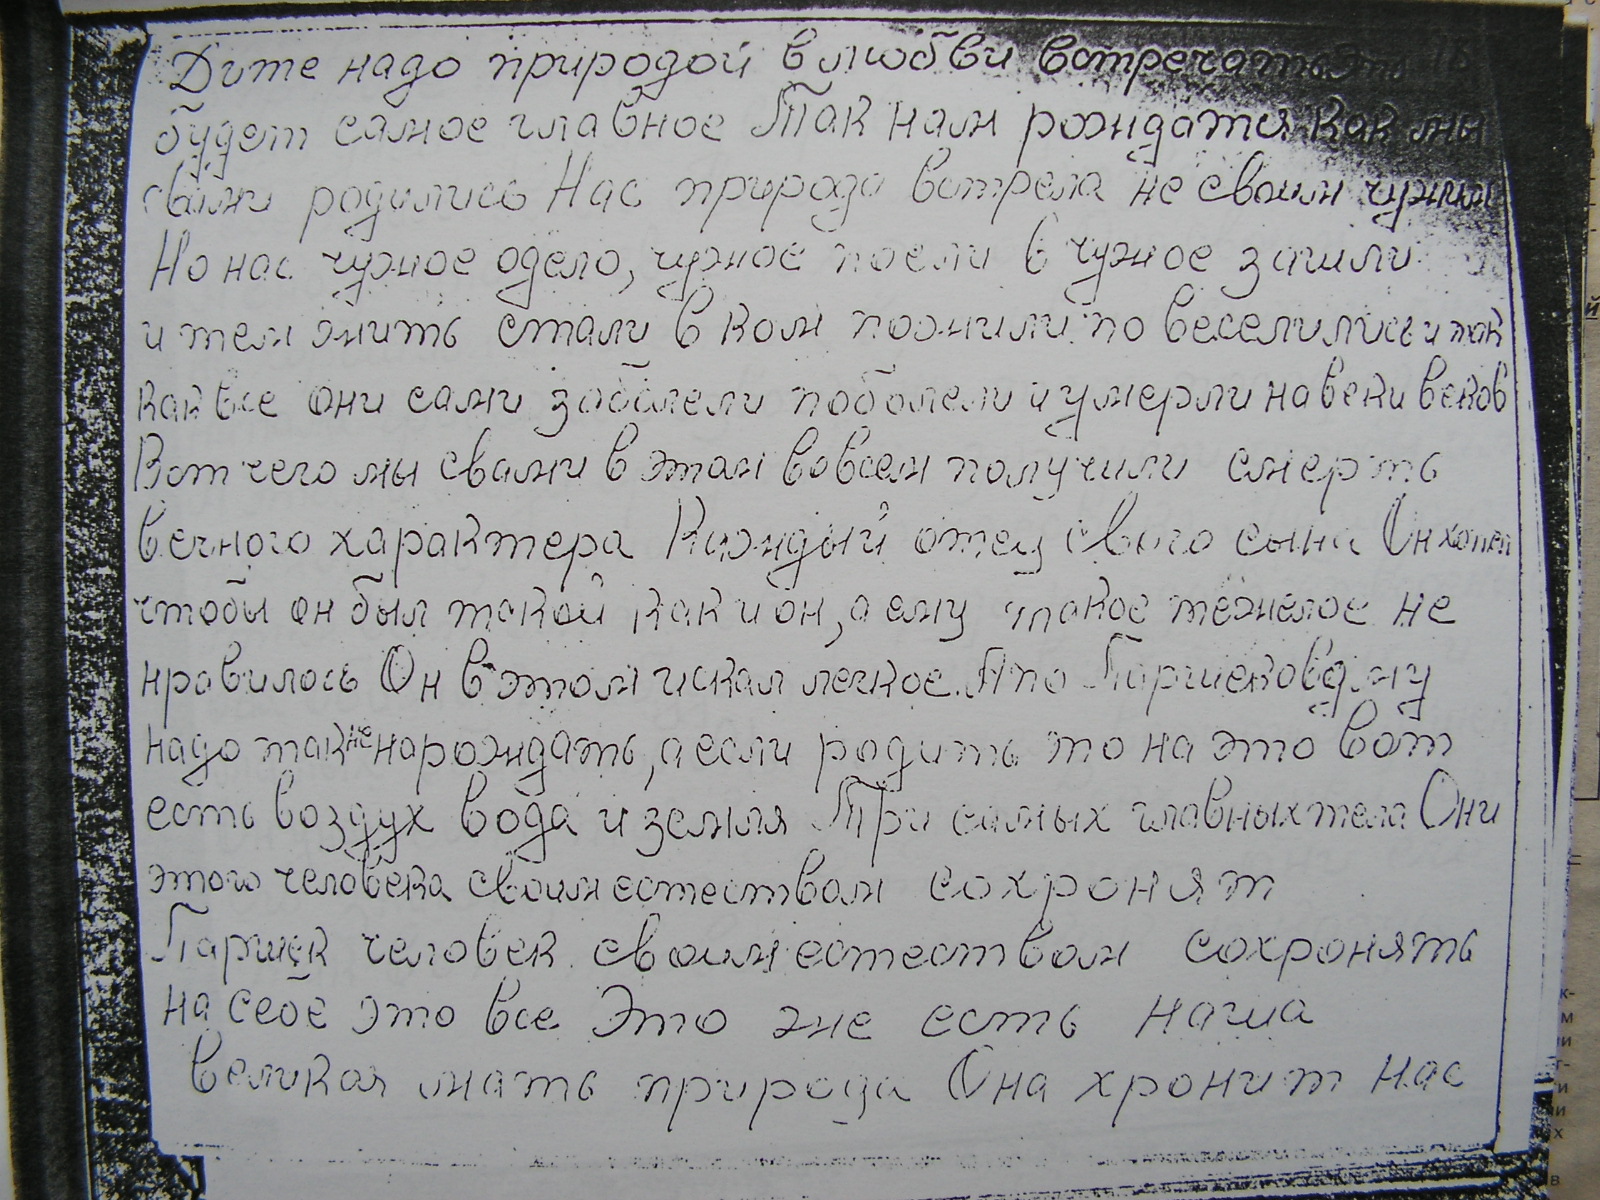 Дите надо природой в любви встречать Это
будет самое главное Так нам рождатся как мы
свами родились Нас природа встрела не своим чужим
Но нас чужое одело, чужое поели в чужое зашли
и тем жить стали в ком пожили по веселились и так
как все они сами заболели поболели и умерли на веки веков
Вот чего мы свами в этам вовсем получили смерть
вечного характера Каждый отец свого сына Он хотел
чтобы он был такой как и он, а ему такое тежелое не
нравилось Он в этом искал легкое. А по Паршековому
надо так не нарождать, а если родить то на это вот
есть воздух вода и земля Три самых главных тела Они
этого человека своим естеством сохронят
Паршек человек своим естеством сохронять
на себе это все Это же есть наша
великая мать природа Она хронит нас